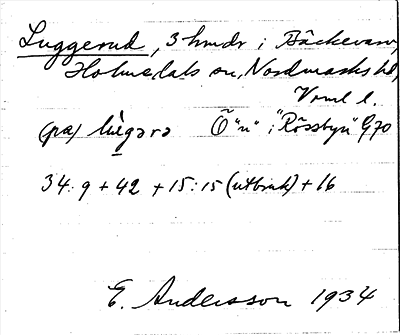 Luggerud, 3 hmdr i Bäckevarv,
Holmedals sn, Nordmarks hd,
Vrml l.
(på) lùgərə Õ "n" i "Rössbyn" G70
34:9 + 42 + 15:15 (utbruk) + 16
E. Andersson 1934